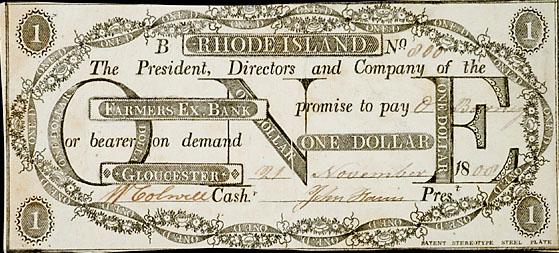 1 ONE DOLLAR 1
B RHODE ISLAND No 800
The President, Directors and Company of the
ONE
FARMERS EX. BANK promise to pay
or bearer on demand ONE DOLLAR
GLOUCESTER 21 November 1808
Wm Colwell Cash.r John Harris Pres.t
1 1
PATENT STEREOTYPE STEEL PLATE